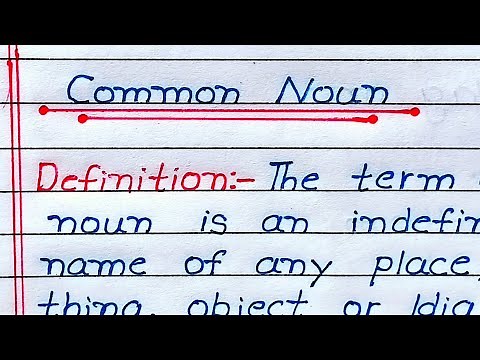 Common Noun
Definition:- The term
noun is an indefin
name of any place,
thing, object or